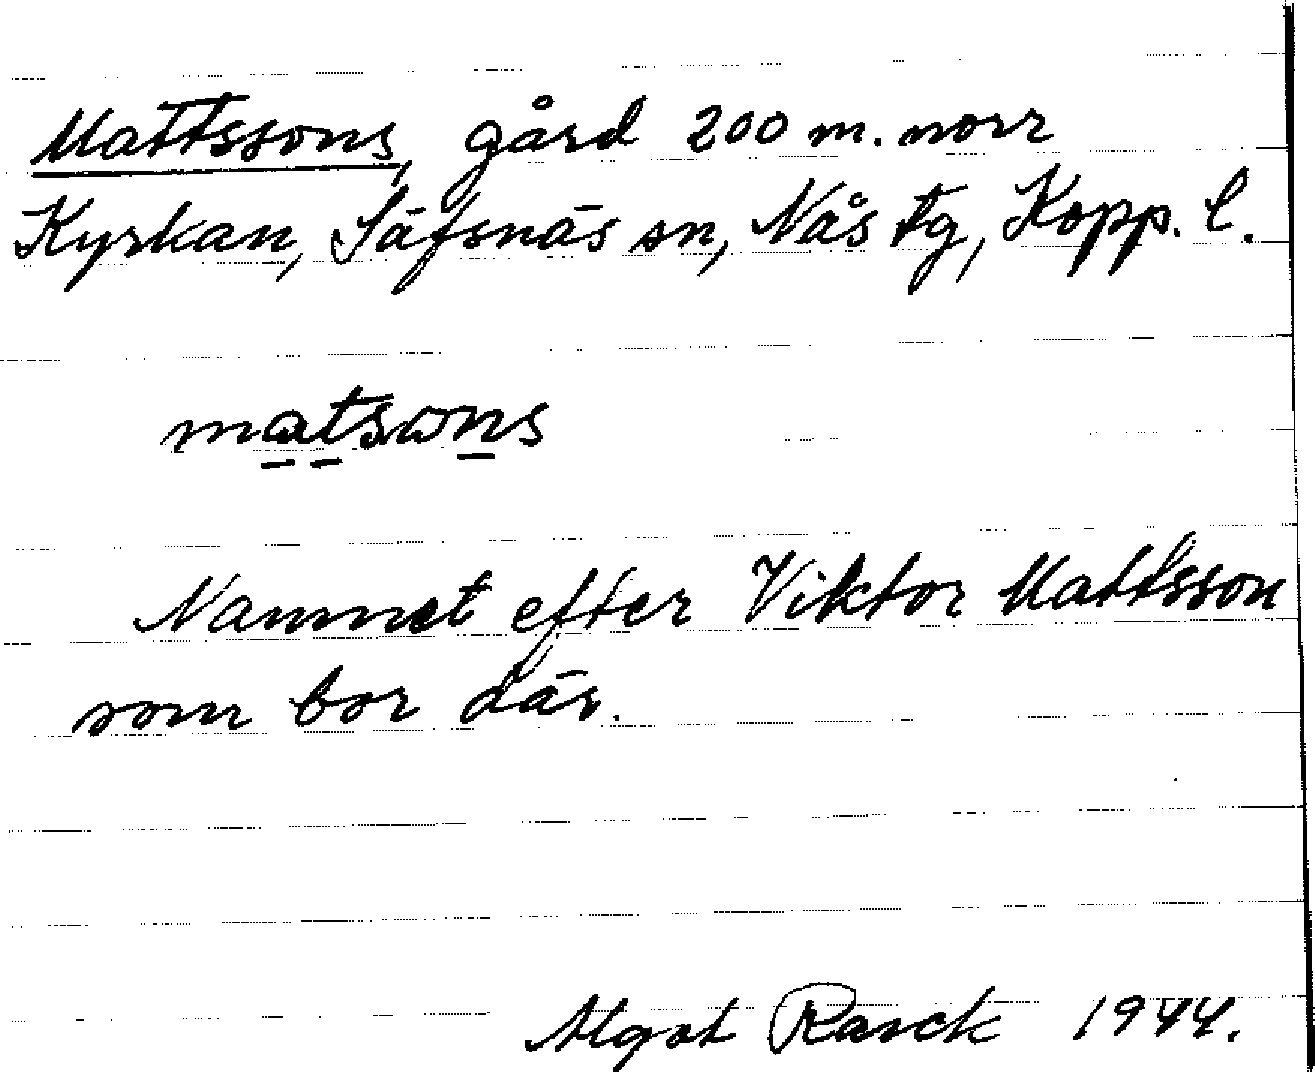 Mattssons, gård 200 m. norr
Kyrkan, Säfsnäs sn, Nås tg, Kopp. l.
matsons
Namnet efter Viktor Mattsson
som bor där.
Algot Rasck 1944.